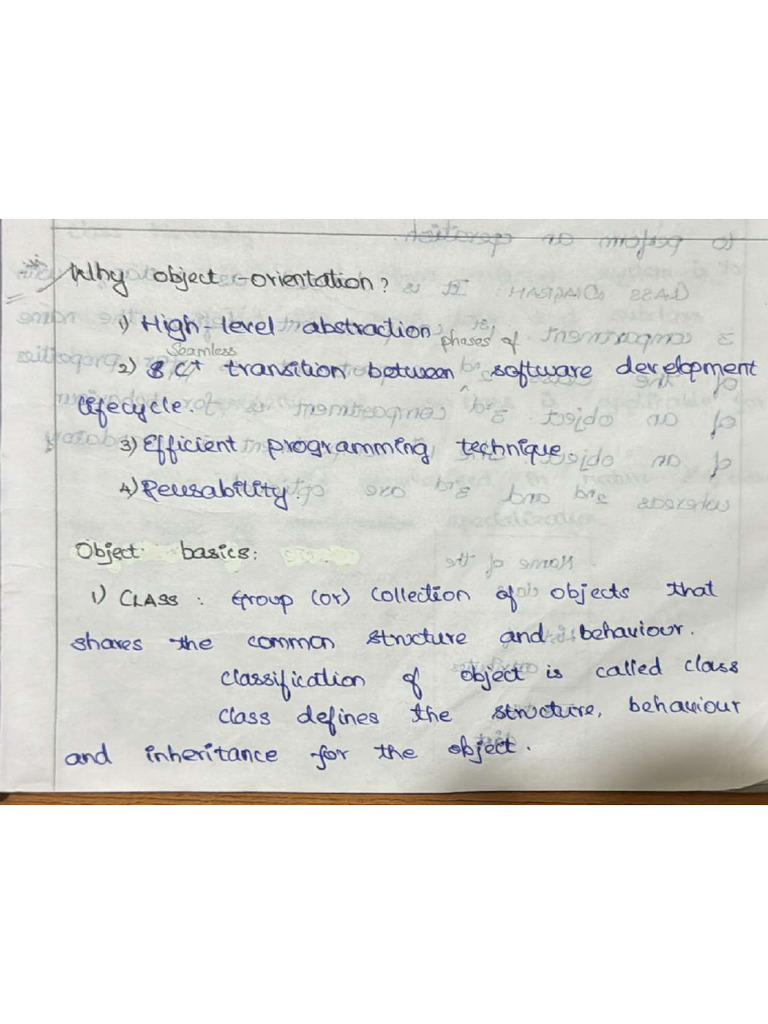 Why object-orientation?
1) High-level abstraction
2) Seamless transition between phases of software development
lifecycle.
3) Efficient programming technique
4) Reusability.
Object basics:
1) CLASS : Group (or) collection of objects that
shares the common structure and behaviour.
Classification of object is called class
Class defines the structure, behaviour
and inheritance for the object.